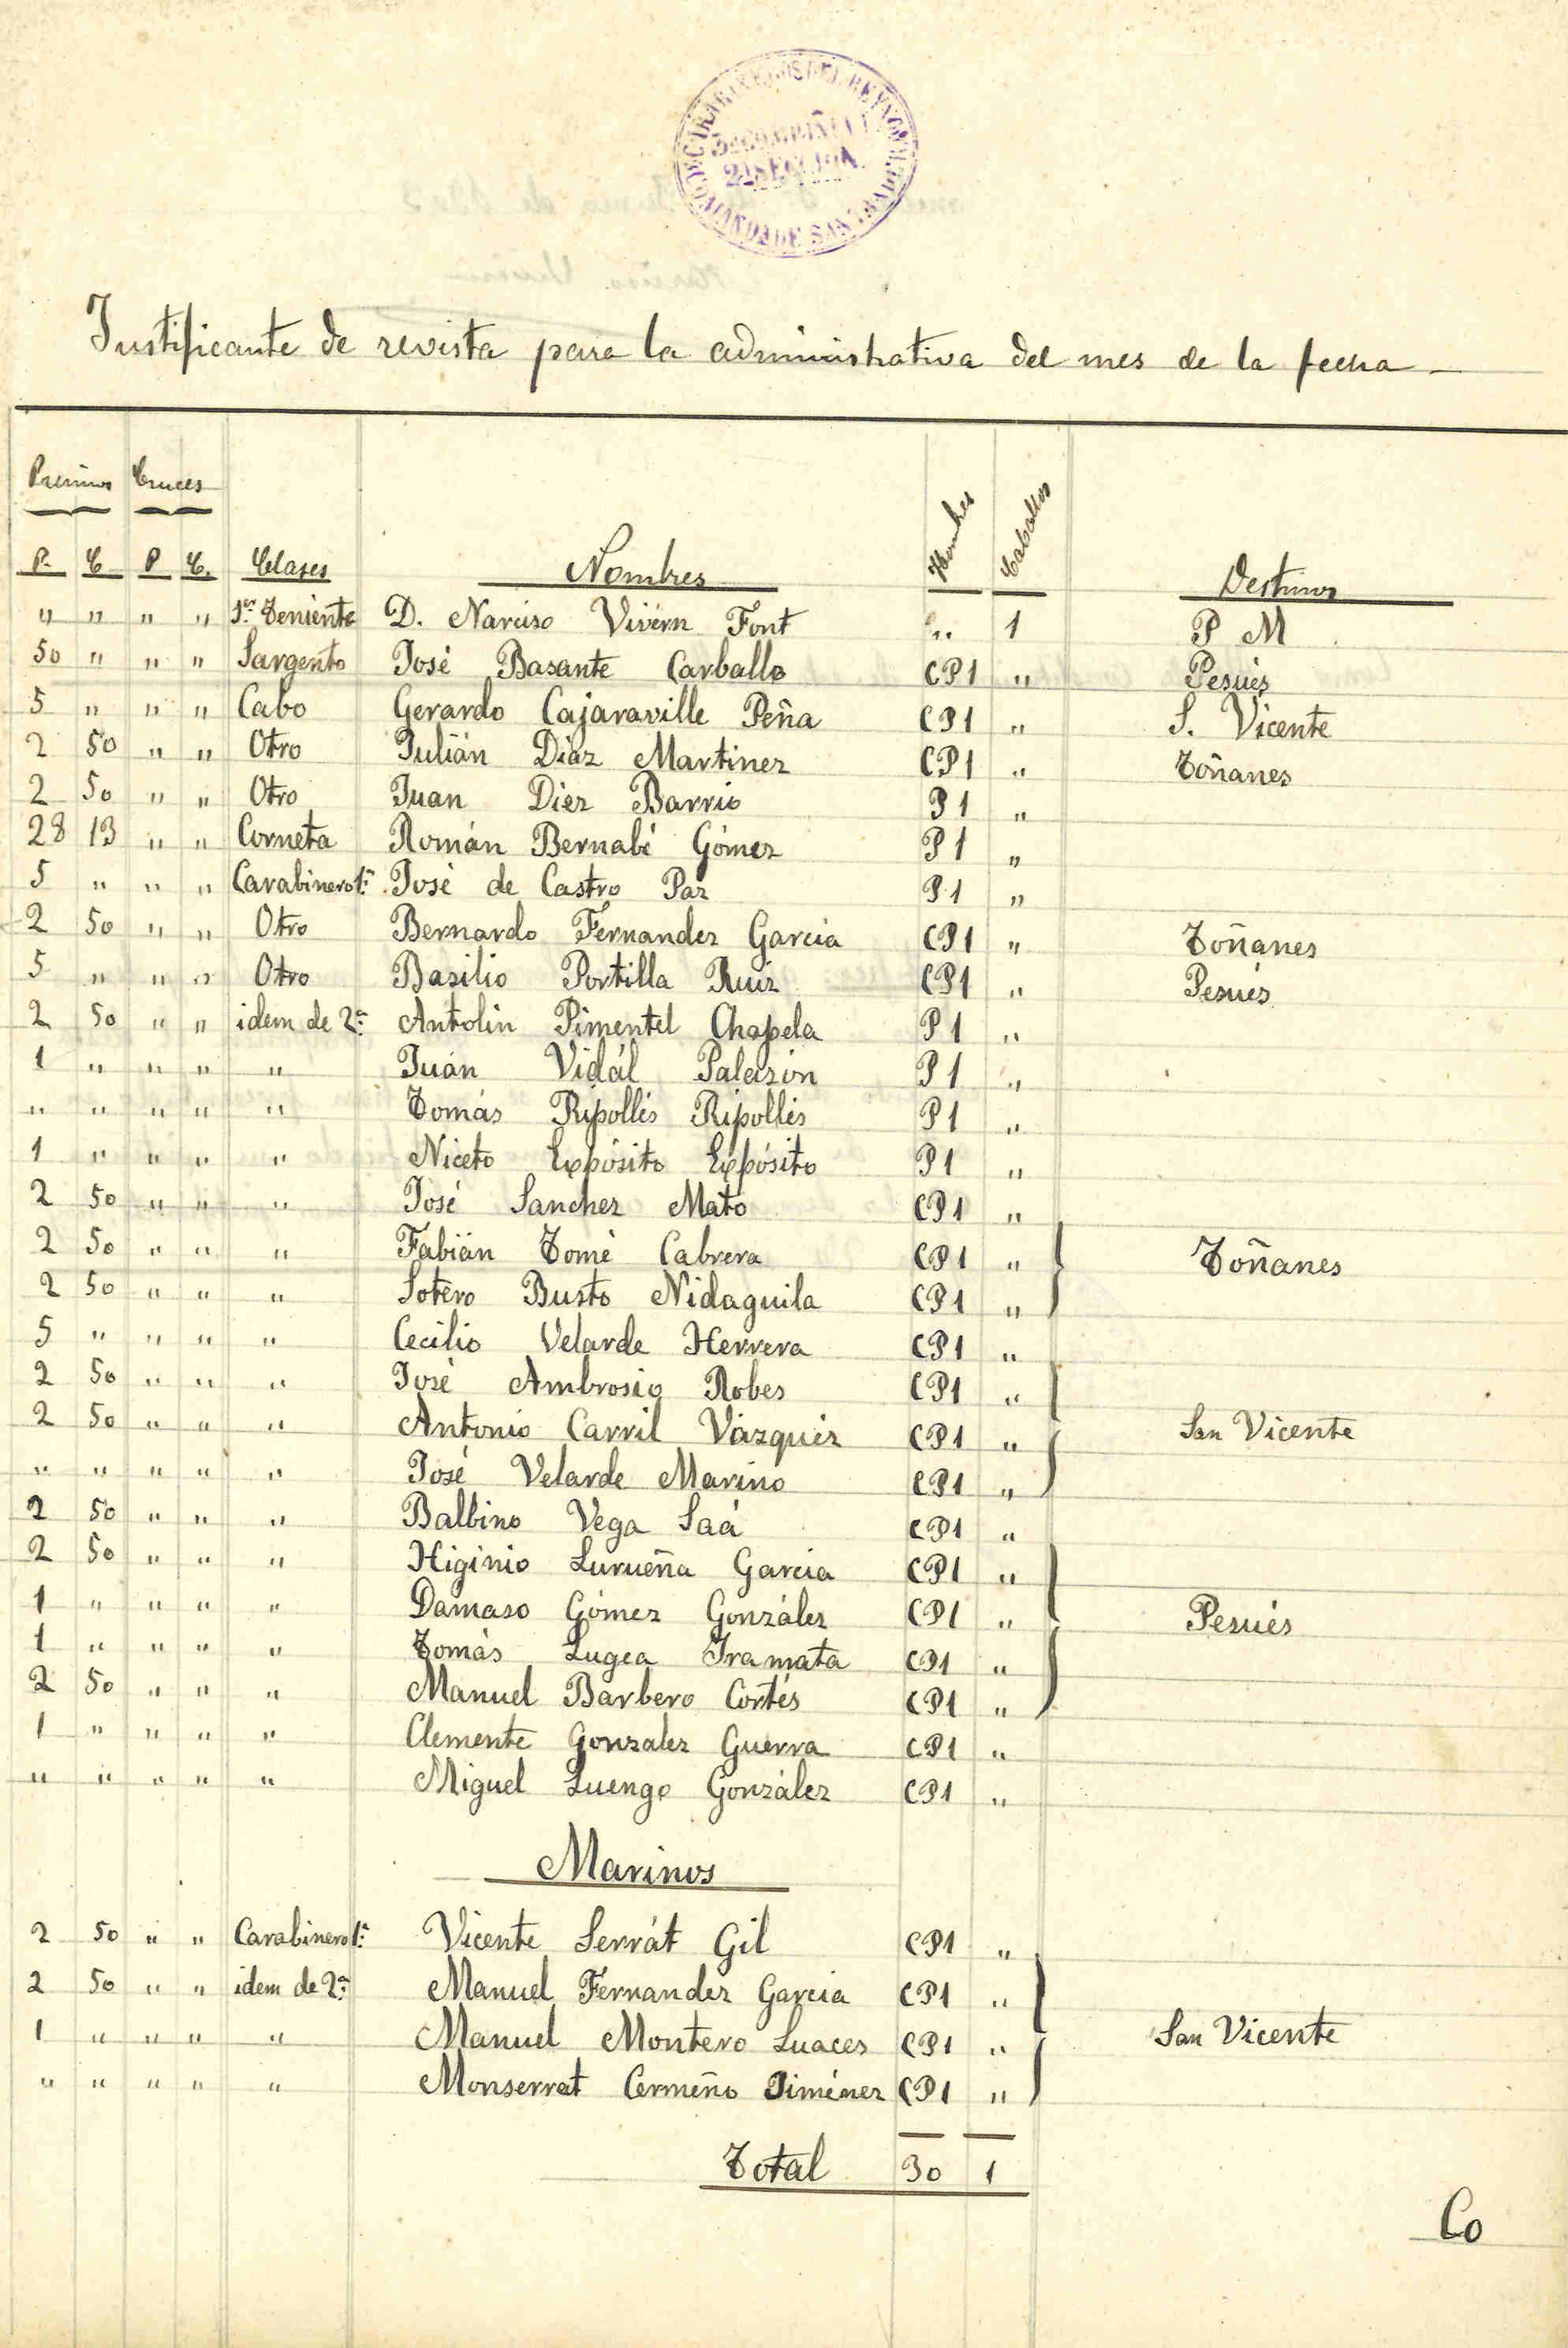 CARABINEROS DEL REYNO
COMANDA DE SANTANDER
COMPAÑIA
2ª SECCION
Justificante de revista para la administrativa del mes de la fecha
Premios Cruces
P. C P C. Clases Nombres Hombres Caballos Destinos
" " " " 1er Teniente D. Narciso Vivérn Font " 1 P M
50 " " " Sargento José Basante Carballo CP1 " Pesués
5 " " " Cabo Gerardo Cajaraville Peña CP1 " S. Vicente
2 50 " " Otro Julián Diaz Martinez CP1 " Toñanes
2 50 " " Otro Juan Diez Barrio P1 "
28 13 " " Corneta Román Bernabé Gómez P1 "
5 " " " Carabinero 1ª José de Castro Paz P1 "
2 50 " " Otro Bernardo Fernandez Garcia CP1 " Toñanes
5 " " " Otro Basilio Portilla Ruiz CP1 " Pesués
2 50 " " idem de 2ª Antolin Pimentel Chapela P1 "
1 " " " " Juán Vidál Palazón P1 "
" " " " " Tomás Ripollés Ripollés P1 "
1 " " " " Niceto Expósito Expósito P1 "
2 50 " " " José Sanchez Mato CP1 "
2 50 " " " Fabián Tomé Cabrera CP1 " Toñanes
2 50 " " " Sotero Busto Nidaguila CP1 "
5 " " " " Cecilio Velarde Herrera CP1 "
2 50 " " " José Ambrosio Robes CP1 "
2 50 " " " Antonio Carril Vázquez CP1 " San Vicente
" " " " " José Velarde Marino CP1 "
2 50 " " " Balbino Vega Saá CP1 "
2 50 " " " Higinio Lurueña Garcia CP1 "
1 " " " " Damaso Gómez González CP1 " Pesués
1 " " " " Tomás Lugea Iramata CP1 "
2 50 " " " Manuel Barbero Cortés CP1 "
1 " " " " Clemente Gonzalez Guerra CP1 "
" " " " " Miguel Luengo González CP1 "
Marinos
2 50 " " Carabinero 1ª Vicente Serrát Gil CP1 "
2 50 " " idem de 2ª Manuel Fernandez Garcia CP1 "
1 " " " " Manuel Montero Luaces CP1 " San Vicente
" " " " " Monserrat Cermeño Jiménez CP1 "
Total 30 1
Co